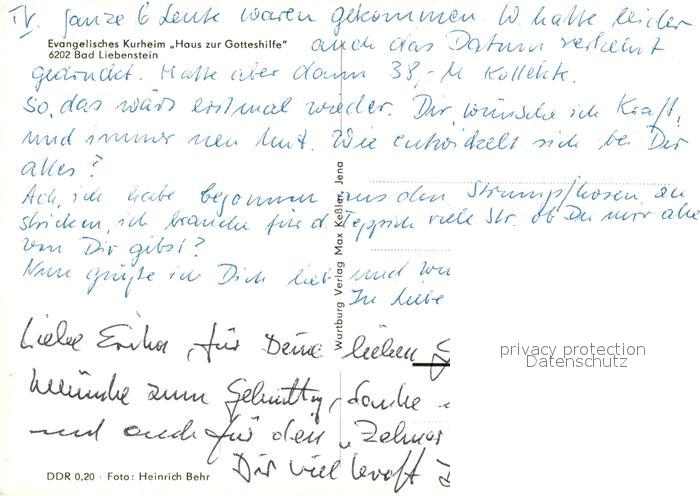 IV. ganze 6 Leute waren gekommen. W. hatte leider
Evangelisches Kurheim „Haus zur Gotteshilfe“
6202 Bad Liebenstein
auch das Datum verkehrt
gedruckt. Hatte aber dann 38,- M Kollekte.
So, das wärs erstmal wieder. Dir wünsche ich Kraft,
und immer neu Mut. Wie entwickelt sich bei Dir
alles?
Ach, ich habe begonnen aus den Strumpfhosen zu
stricken, ich brauche für d. Teppich viele Str. ob Du mir alte
von Dir gibst?
Nun grüße ich Dich lieb und
In Liebe
Wartburg Verlag Max Keßler, Jena
Liebe Erika, für Deine lieben
Wünsche zum Geburtstag, danke
und auch für den „Zehner
Dir viel Kraft
privacy protection
Datenschutz
DDR 0,20 · Foto: Heinrich Behr